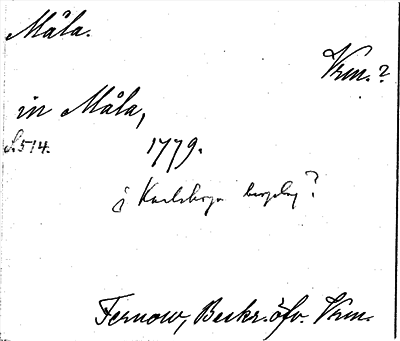 Måla.
Vrm. ?
in Måla,
s. 514.
1779.
j Karlskoga bergslag?
Fernow, Beskr. öfv. Vrm.